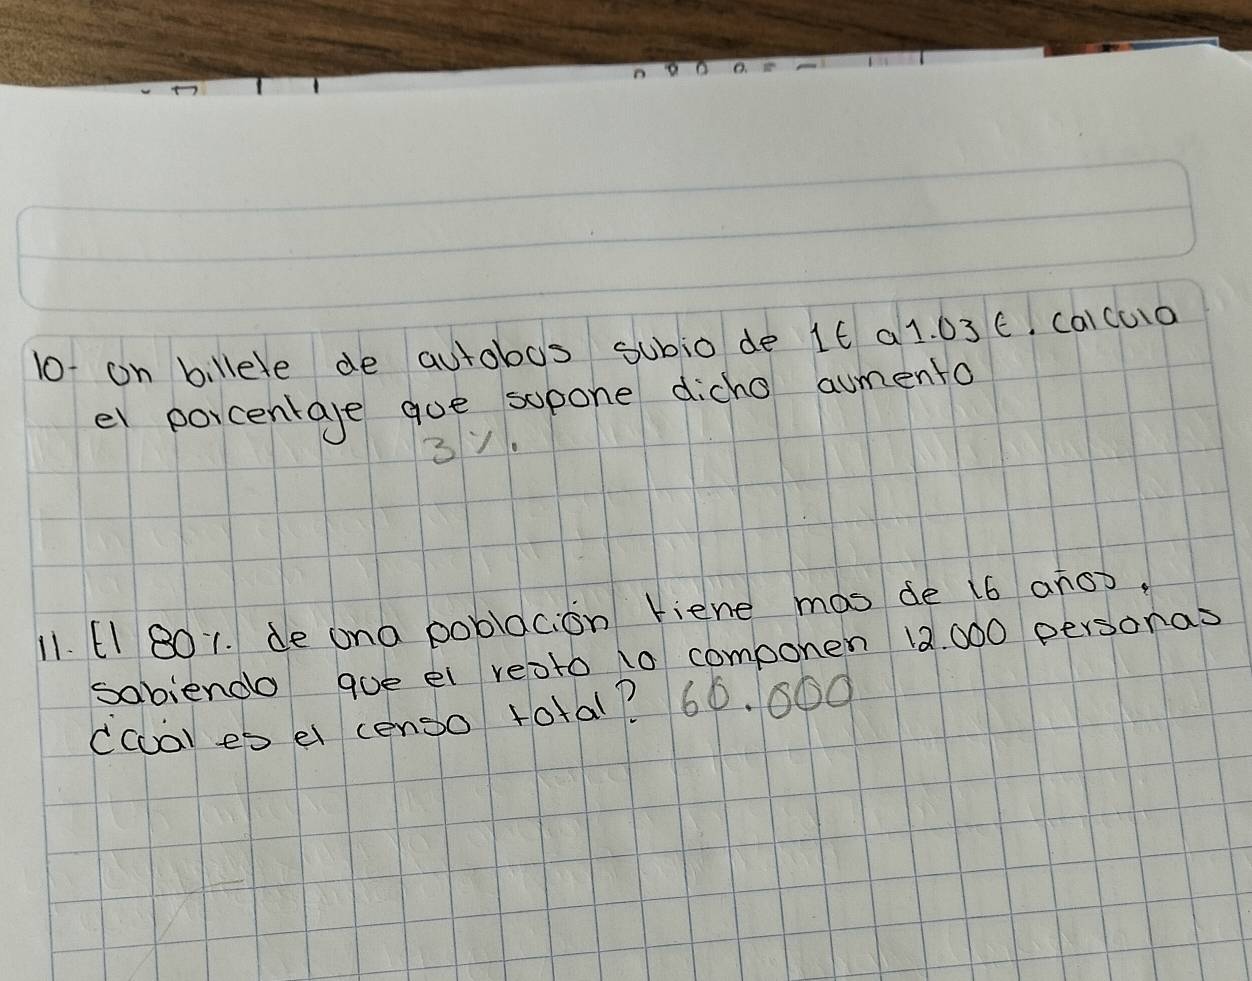 10- Un billete de autobus subio de 1€ a 1.03 €. calcula
el porcentaje que supone dicho aumento
3%.
11. El 80%. de una población tiene mas de 16 años,
sabiendo que el resto lo componen 12.000 personas
¿cuál es el censo total? 60.000